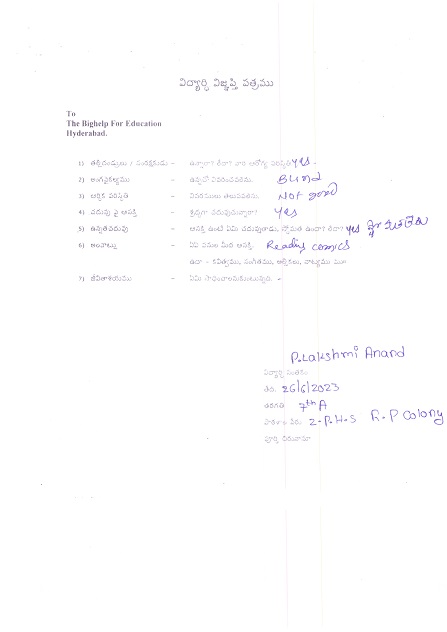 విద్యార్థి విజ్ఞప్తి పత్రము
To
The Bighelp For Education
Hyderabad.
1) తల్లిదండ్రులు / సంరక్షకుడు – ఉన్నారా? లేదా? వారి ఆరోగ్య పరిస్థితి yes.
2) అంగవైకల్యము – ఉన్నచో వివరించవలెను. Blind
3) ఆర్థిక పరిస్థితి – వివరములు తెలుపవలెను. Not good
4) చదువు పై ఆసక్తి – శ్రద్ధగా చదువుచున్నారా? yes
5) ఉన్నత చదువు – ఆసక్తి ఉంటే ఏమి చదువుతారు. స్తోమత ఉందా? లేదా? yes
6) అలవాట్లు – ఏఏ పనుల మీద ఆసక్తి. Reading comics
ఉదా - కవిత్వము, సంగీతము, ఆటలు, నాట్యము మొ॥
7) జీవితాశయము – ఏమి సాధించాలనుకుంటున్నారు. –
P.Lakshmi Anand
విద్యార్థి సంతకం
తేది. 26/6/2023
తరగతి 7th A
పాఠశాల పేరు Z.P.H.S R.P Colony
పూర్తి చిరునామా